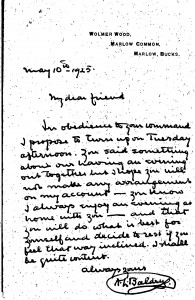 WOLMER WOOD,
MARLOW COMMON,
MARLOW, BUCKS.
May 10th 1925.
My dear friend
In obedience to your command
I propose to turn up on Tuesday
afternoon. You said something
about our having an evening
out together but I hope you will
not make any arrangements
on my account — you know
I always enjoy an evening at
home with you — and that
you will do what is best for
yourself and decide to rest if you
feel that way inclined. I shall
be quite content.
Always yours
A L Baldry